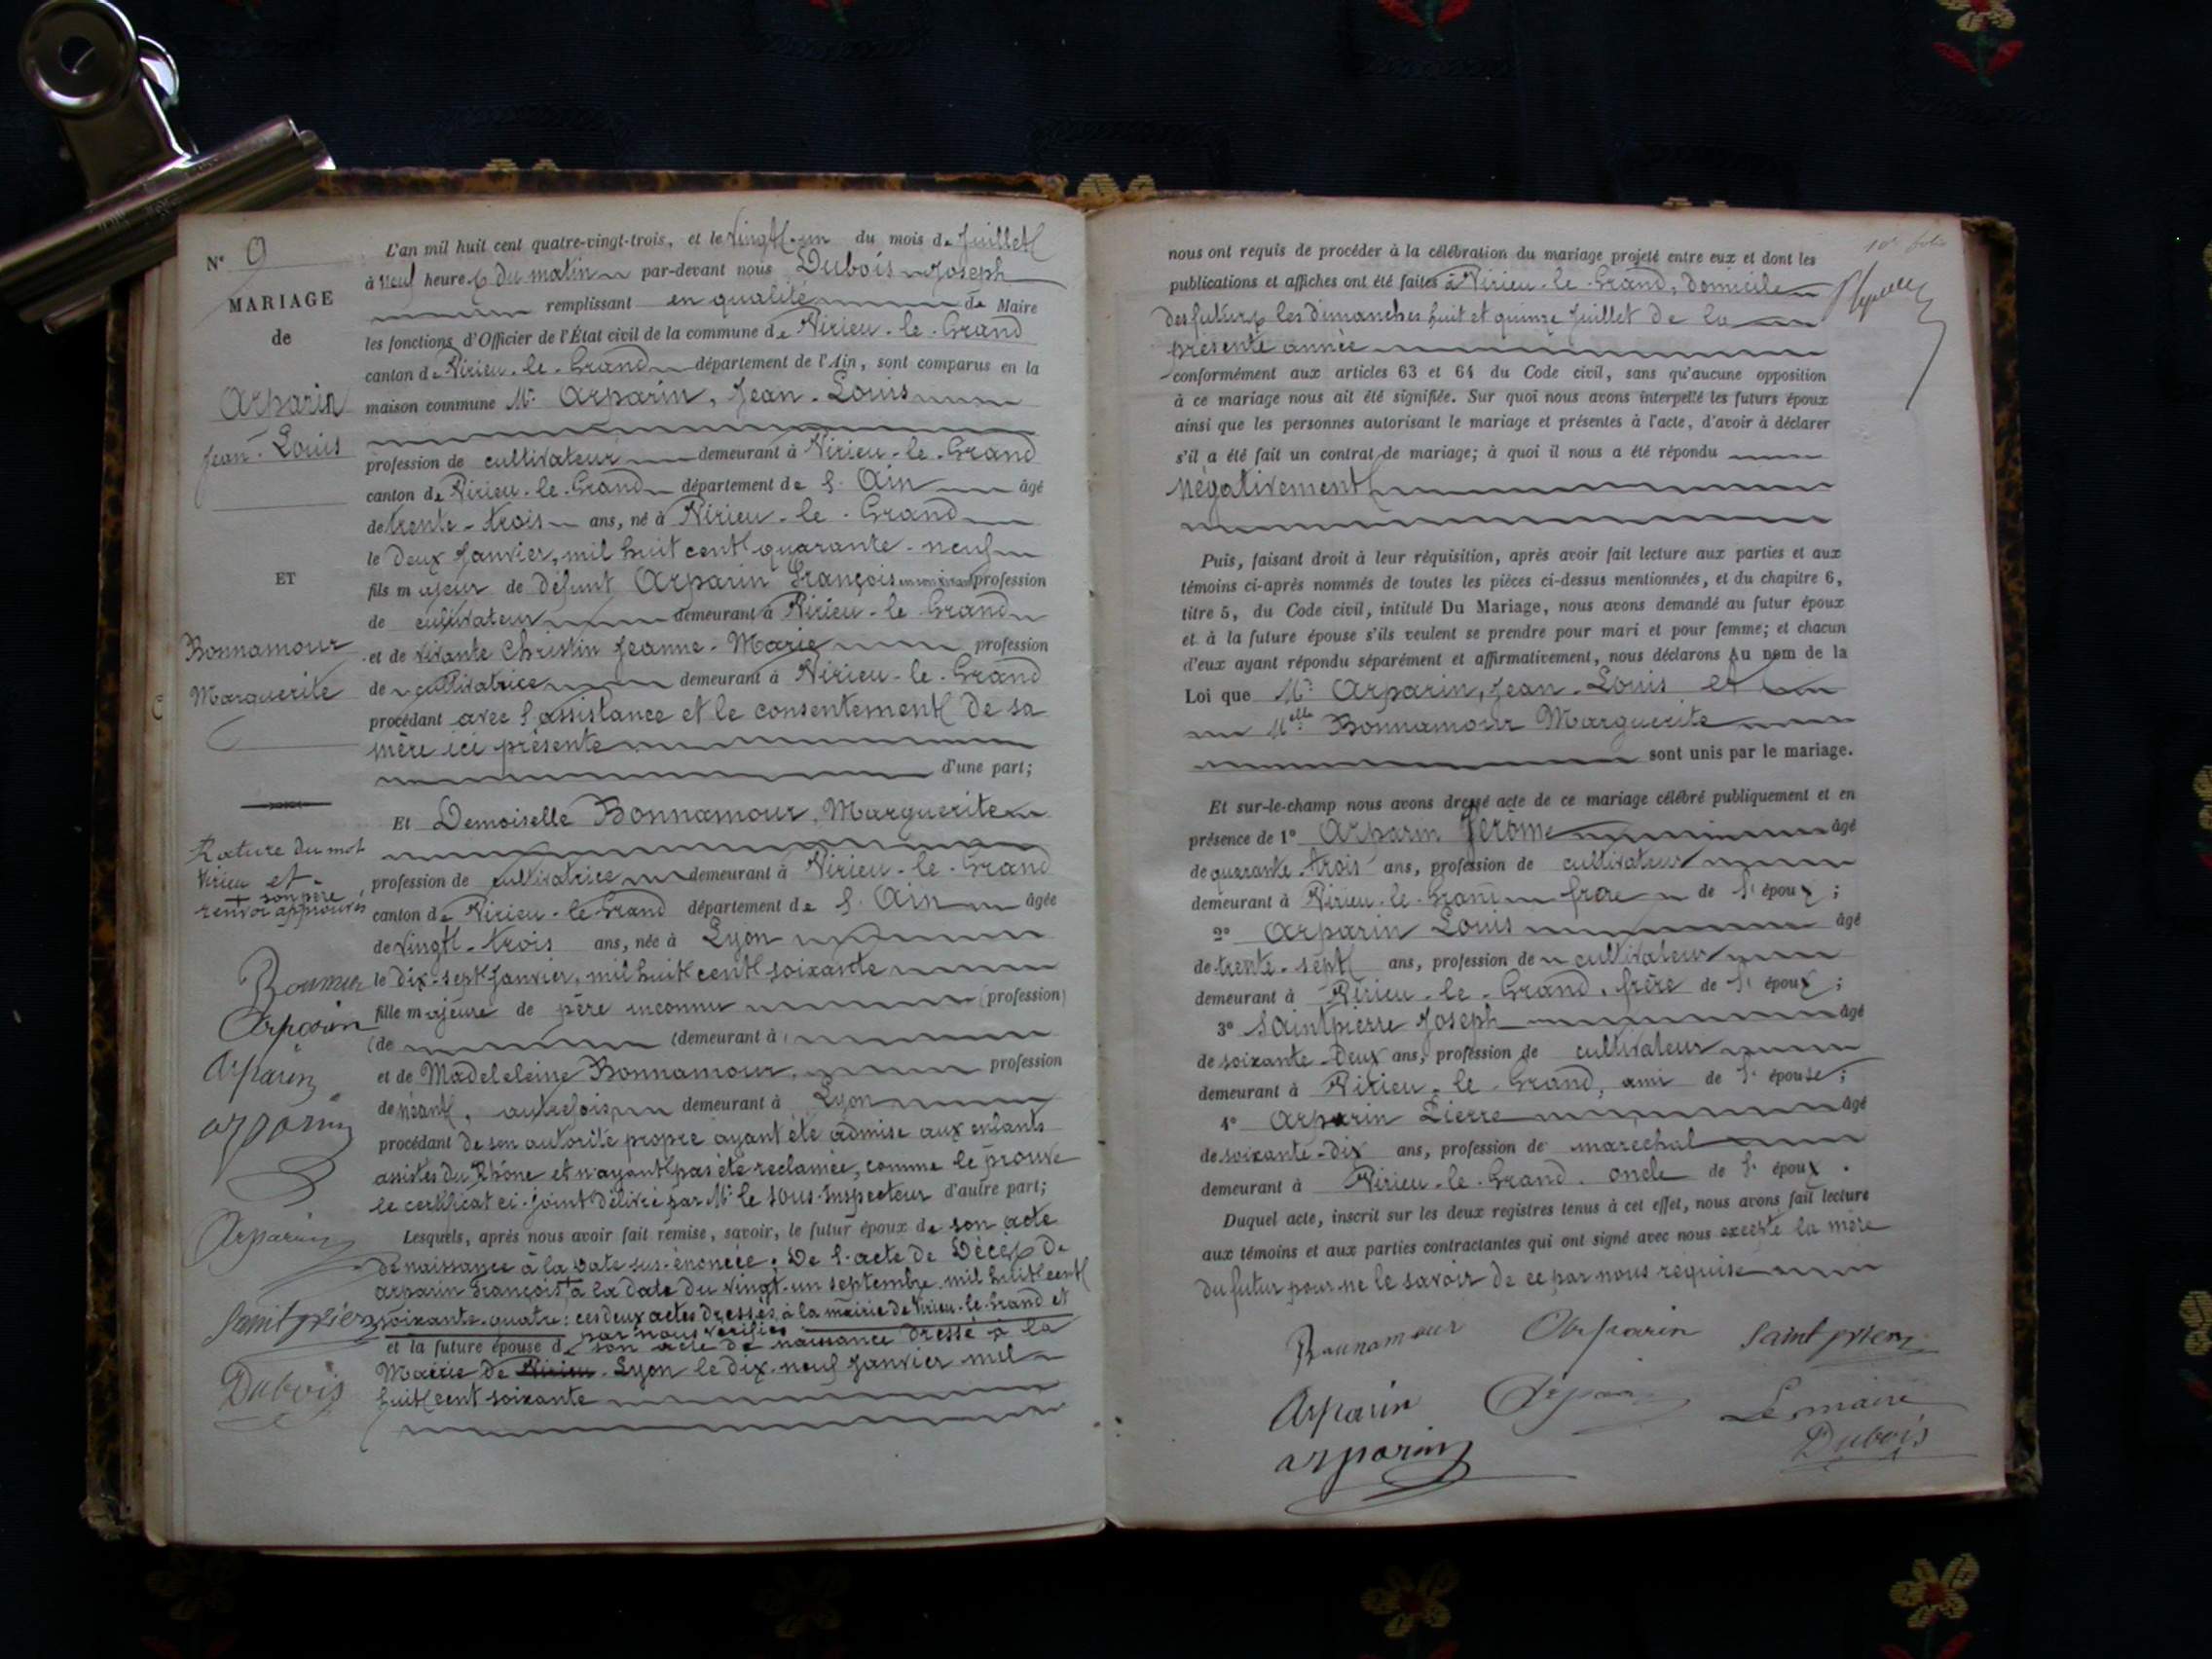 N° 9
MARIAGE
de
Arparin
Jean-Louis
ET
Bonnamour
Marguerite
Rature du mot
Virieu et
+ son père
renvoi approuvés
Arparin
Arparin
arparin
Arparin
Saintpierre
Dubois
L'an mil huit cent quatre-vingt-trois, et le vingt-un du mois de Juillet
à neuf heures du matin par-devant nous Dubois Joseph
remplissant en qualité de Maire
les fonctions d'Officier de l'État civil de la commune de Virieu-le-Grand
canton de Virieu-le-Grand département de l'Ain, sont comparus en la
maison commune Mr. Arparin, Jean-Louis
profession de cultivateur demeurant à Virieu-le-Grand
canton de Virieu-le-Grand département de l'Ain âgé
de trente-trois ans, né à Virieu-le-Grand
le deux Janvier, mil huit cent quarante-neuf
fils majeur de défunt Arparin François en son vivant profession
de cultivateur demeurant à Virieu-le-Grand
et de vivante Christin Jeanne-Marie profession
de cultivatrice demeurant à Virieu-le-Grand
procédant avec l'assistance et le consentement de sa
mère ici présente
d'une part;
Et Demoiselle Bonnamour, Marguerite
profession de cultivatrice demeurant à Virieu-le-Grand
canton de Virieu-le-Grand département de l'Ain âgée
de vingt-trois ans, née à Lyon
le dix-sept Janvier, mil huit cent soixante
fille majeure de père inconnu (profession)
(de (demeurant à)
et de Madeleleine Bonnamour, profession
de néant, autrefois demeurant à Lyon
procédant de son autorité propre ayant été admise aux enfants
assistés du Rhône et n'ayant pas été reclamée, comme le prouve
le certificat ci-joint délivré par Mr le Sous-Inspecteur d'autre part;
Lesquels, après nous avoir fait remise, savoir, le futur époux de son acte
de naissance à la date sus-énoncée. De l'acte de Décès de
arparin François + à la date du vingt-un septembre mil huit cent
soixante-quatre: ces deux actes dressés à la mairie de Virieu-le-Grand et
par nous vérifiés
et la future épouse de son acte de naissance dressé à la
Mairie de Virieu Lyon le dix-neuf Janvier mil
huit cent soixante
10e folio
nous ont requis de procéder à la célébration du mariage projeté entre eux et dont les
publications et affiches ont été faites à Virieu-le-Grand, domicile
des futurs les dimanches huit et quinze Juillet de la
présente année
conformément aux articles 63 et 64 du Code civil, sans qu'aucune opposition
à ce mariage nous ait été signifiée. Sur quoi nous avons interpellé les futurs époux
ainsi que les personnes autorisant le mariage et présentes à l'acte, d'avoir à déclarer
s'il a été fait un contrat de mariage; à quoi il nous a été répondu
négativement
Puis, faisant droit à leur réquisition, après avoir fait lecture aux parties et aux
témoins ci-après nommés de toutes les pièces ci-dessus mentionnées, et du chapitre 6,
titre 5, du Code civil, intitulé Du Mariage, nous avons demandé au futur époux
et à la future épouse s'ils veulent se prendre pour mari et pour femme; et chacun
d'eux ayant répondu séparément et affirmativement, nous déclarons Au nom de la
Loi que Mr Arparin, Jean-Louis et
Melle Bonnamour Marguerite
sont unis par le mariage.
Et sur-le-champ nous avons dressé acte de ce mariage célébré publiquement et en
présence de 1° Arparin Jérôme âgé
de quarante-trois ans, profession de cultivateur
demeurant à Virieu-le-Grand frère de l'époux;
2° Arparin Louis âgé
de trente-sept ans, profession de cultivateur
demeurant à Virieu-le-Grand, frère de l'époux;
3° Saintpierre Joseph âgé
de soixante-deux ans, profession de cultivateur
demeurant à Virieu-le-Grand, ami de l'épouse;
4° Arparin Pierre âgé
de soixante-dix ans, profession de maréchal
demeurant à Virieu-le-Grand. oncle de l'époux.
Duquel acte, inscrit sur les deux registres tenus à cet effet, nous avons fait lecture
aux témoins et aux parties contractantes qui ont signé avec nous excepté la mère
du futur pour ne le savoir de ce par nous requise
Bounamour Arparin Saintpierre
Arparin Arparin Le maire
arparin Dubois